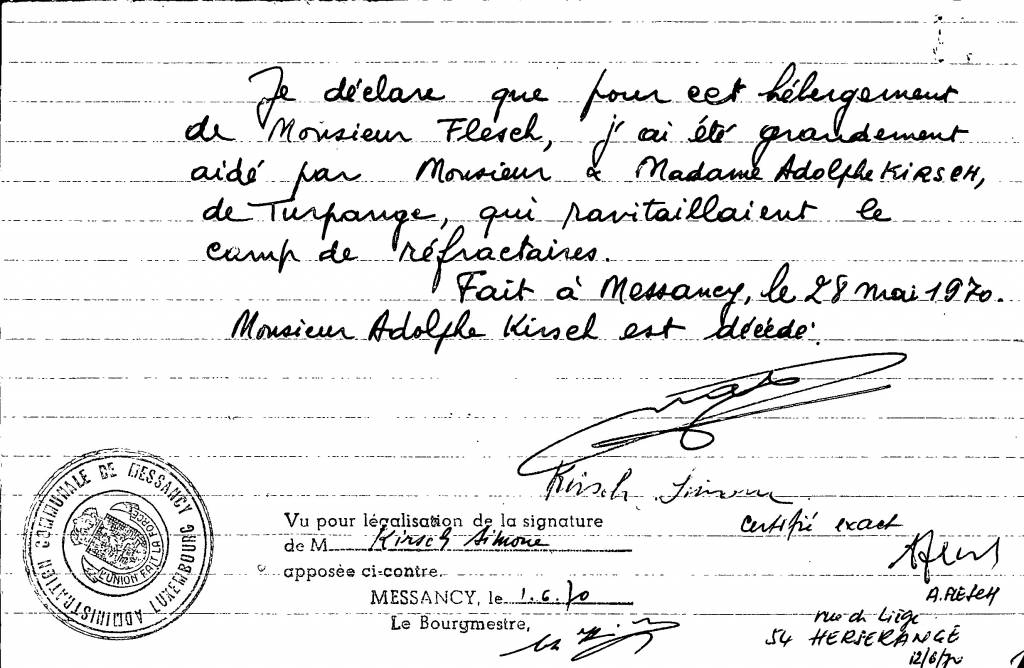 Je déclare que pour cet hébergement
de Monsieur Flesch, j'ai été grandement
aidé par Monsieur & Madame Adolphe KIRSCH,
de Turpange, qui ravitaillaient le
camp de réfractaires.
Fait à Messancy, le 28 mai 1970.
Monsieur Adolphe Kirsch est décédé.
Kirsch Simone
ADMINISTRATION COMMUNALE DE MESSANCY LUXEMBOURG
L'UNION FAIT LA FORCE
Vu pour légalisation de la signature
de M. Kirsch Simone
apposée ci-contre.
MESSANCY, le 1.6.70
Le Bourgmestre,
Certifié exact
A. FLESCH
rue de Liège
54 HERSERANGE
12/6/70